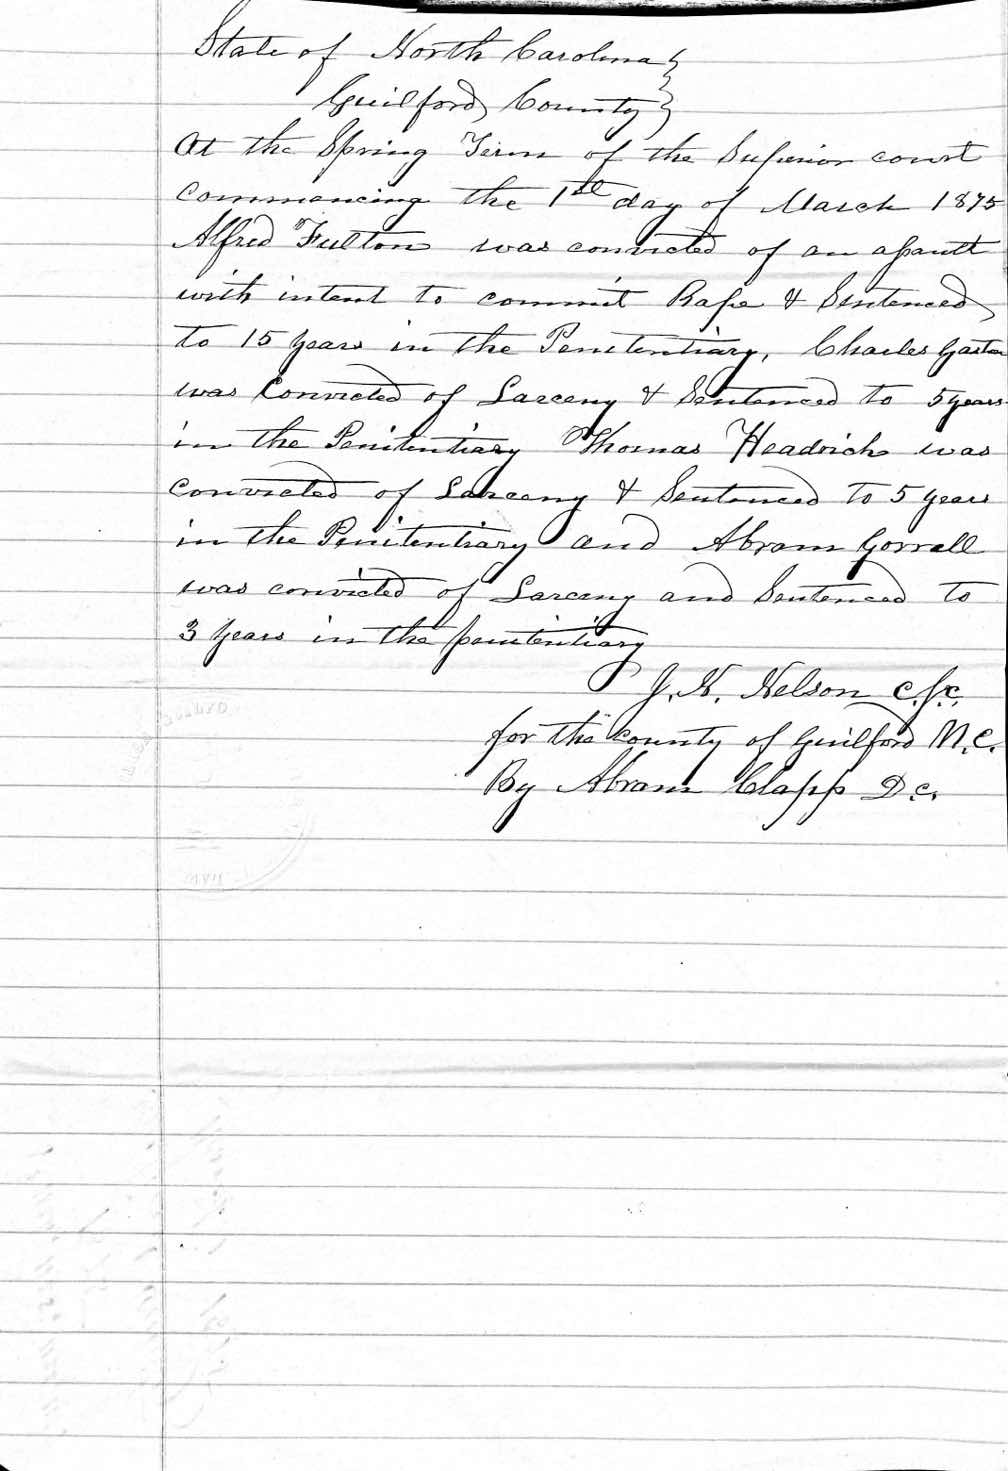 State of North Carolina }
Guilford County }
At the Spring Term of the Superior court
commencing the 1st day of March 1875
Alfred Fulton was convicted of an assault
with intent to commit Rape & Sentenced
to 15 years in the Penitentiary, Charles Gaston
was Convicted of Larceny & Sentenced to 5 years
in the Penitentiary Thomas Headrick was
convicted of Larceny & Sentenced to 5 years
in the Penitentiary and Abram Gorrell
was convicted of Larceny and Sentenced to
3 years in the penitentiary
J. N. Nelson C.S.C.
for the county of Guilford N.C.
By Abram Clapp D.C.